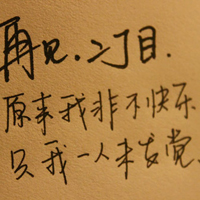 再见.二丁目.
原来我非不快乐
只我一人未发觉.